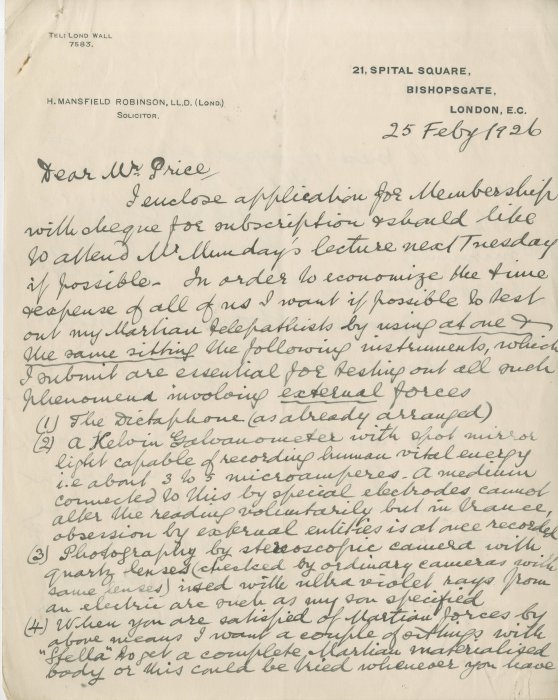 TELI LOND WALL
7583.
21, SPITAL SQUARE,
BISHOPSGATE,
LONDON, E.C.
H. MANSFIELD ROBINSON, LL.D. (LOND.)
SOLICITOR.
25 Feby 1926
Dear Mr. Price
I enclose application for Membership
with cheque for subscription & should like
to attend Mr Munday's lecture next Tuesday
if possible - In order to economize the time
& expense of all of us I want if possible to test
out my Martian telepathists by using at one &
the same sitting the following instruments, which
I submit are essential for testing out all such
phenomena involving external forces
(1) The Dictaphone (as already arranged)
(2) A Kelvin Galvanometer with spot mirror
light capable of recording human vital energy
i.e about 3 to 5 microamperes. A medium
connected to this by special electrodes cannot
alter the reading voluntarily but in trance,
obsession by external entities is at once recorded
(3) Photography by stereoscopic camera with
quartz lenses (checked by ordinary cameras with
same lenses) used with ultra violet rays from
an electric arc such as my son specified
(4) When you are satisfied of Martian forces by
above means I want a couple of sittings with
"Stella" to get a complete Martian materialised
body or this could be tried whenever you have